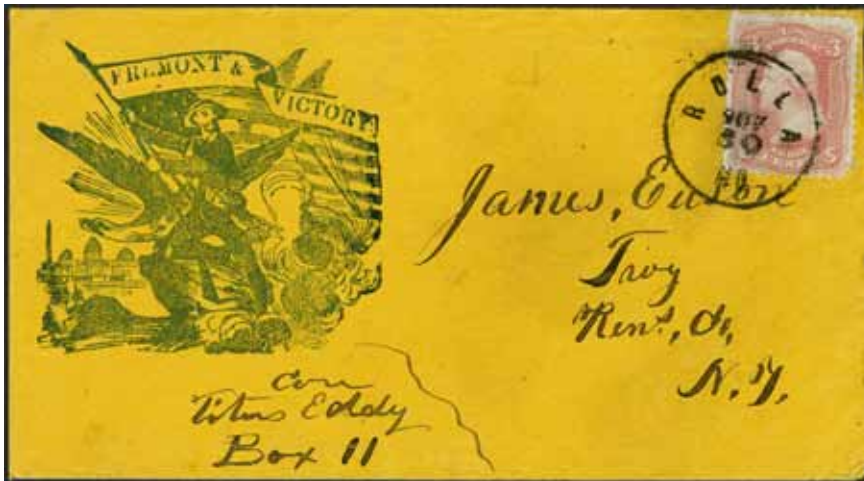 FREMONT &
VICTORY!
ROLLA
AUG
MO
3 3
James,
Troy
Rens, Co,
N. Y.
Care
Titus Eddy
Box 11